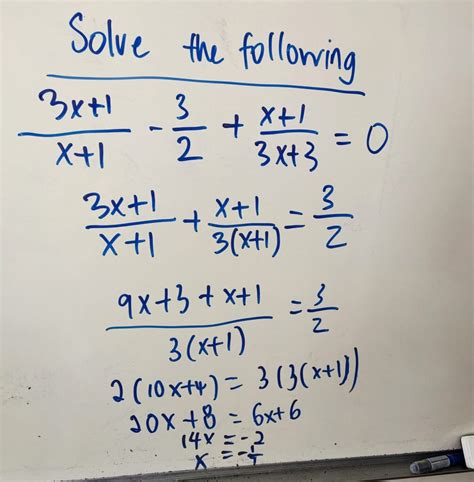 Solve the following
3x+1/x+1 - 3/2 + x+1/3x+3 = 0
3x+1/x+1 + x+1/3(x+1) = 3/2
9x+3+x+1/3(x+1) = 3/2
2(10x+4) = 3(3(x+1))
20x+8 = 6x+6
14x = -2
x = -1/7